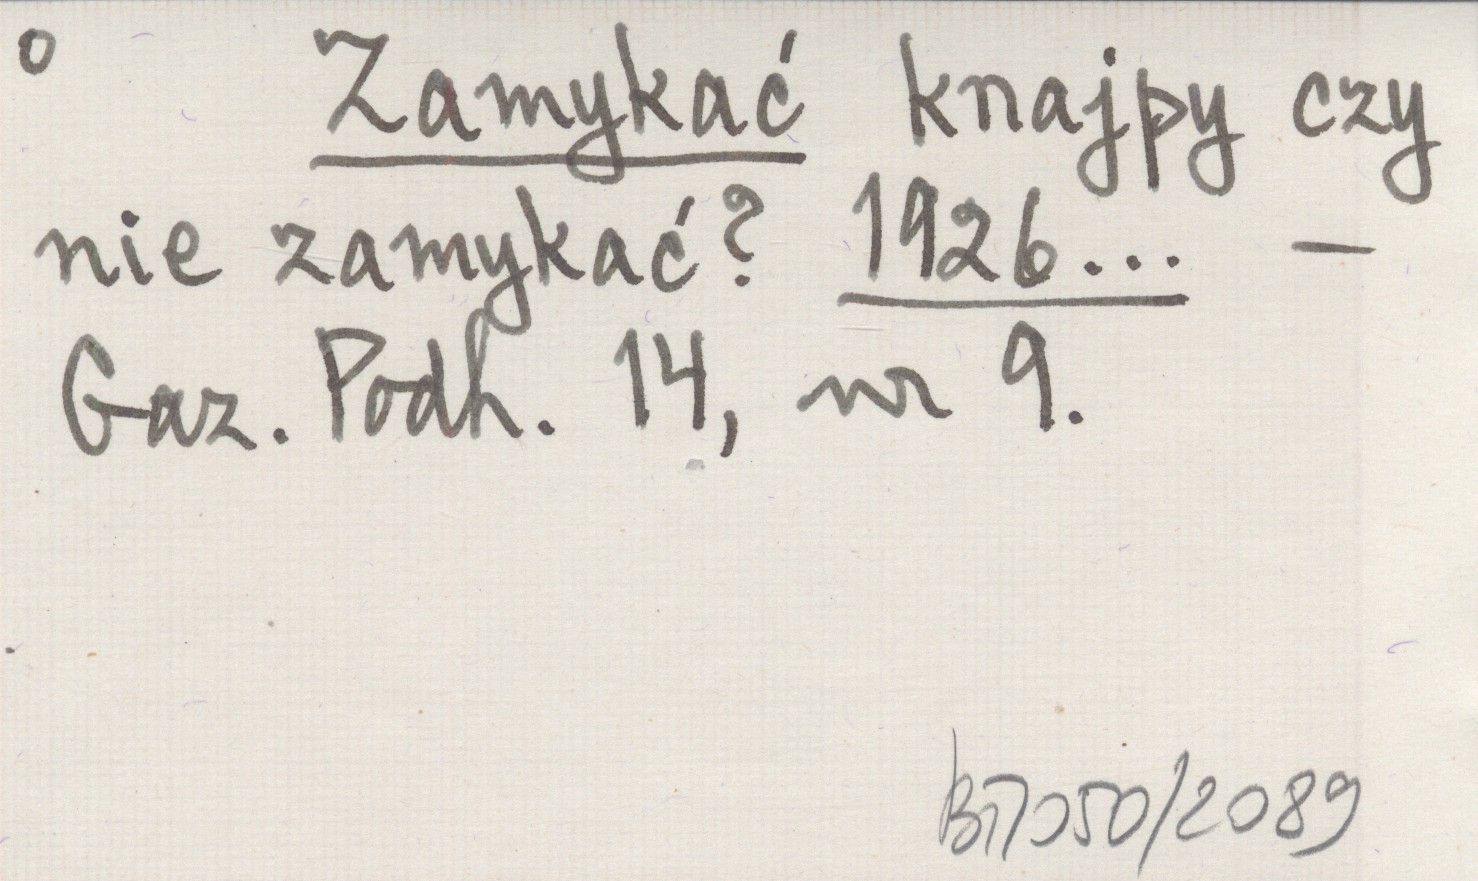 o Zamykać knajpy czy
nie zamykać? 1926... —
Gaz. Podh. 14, nr 9.